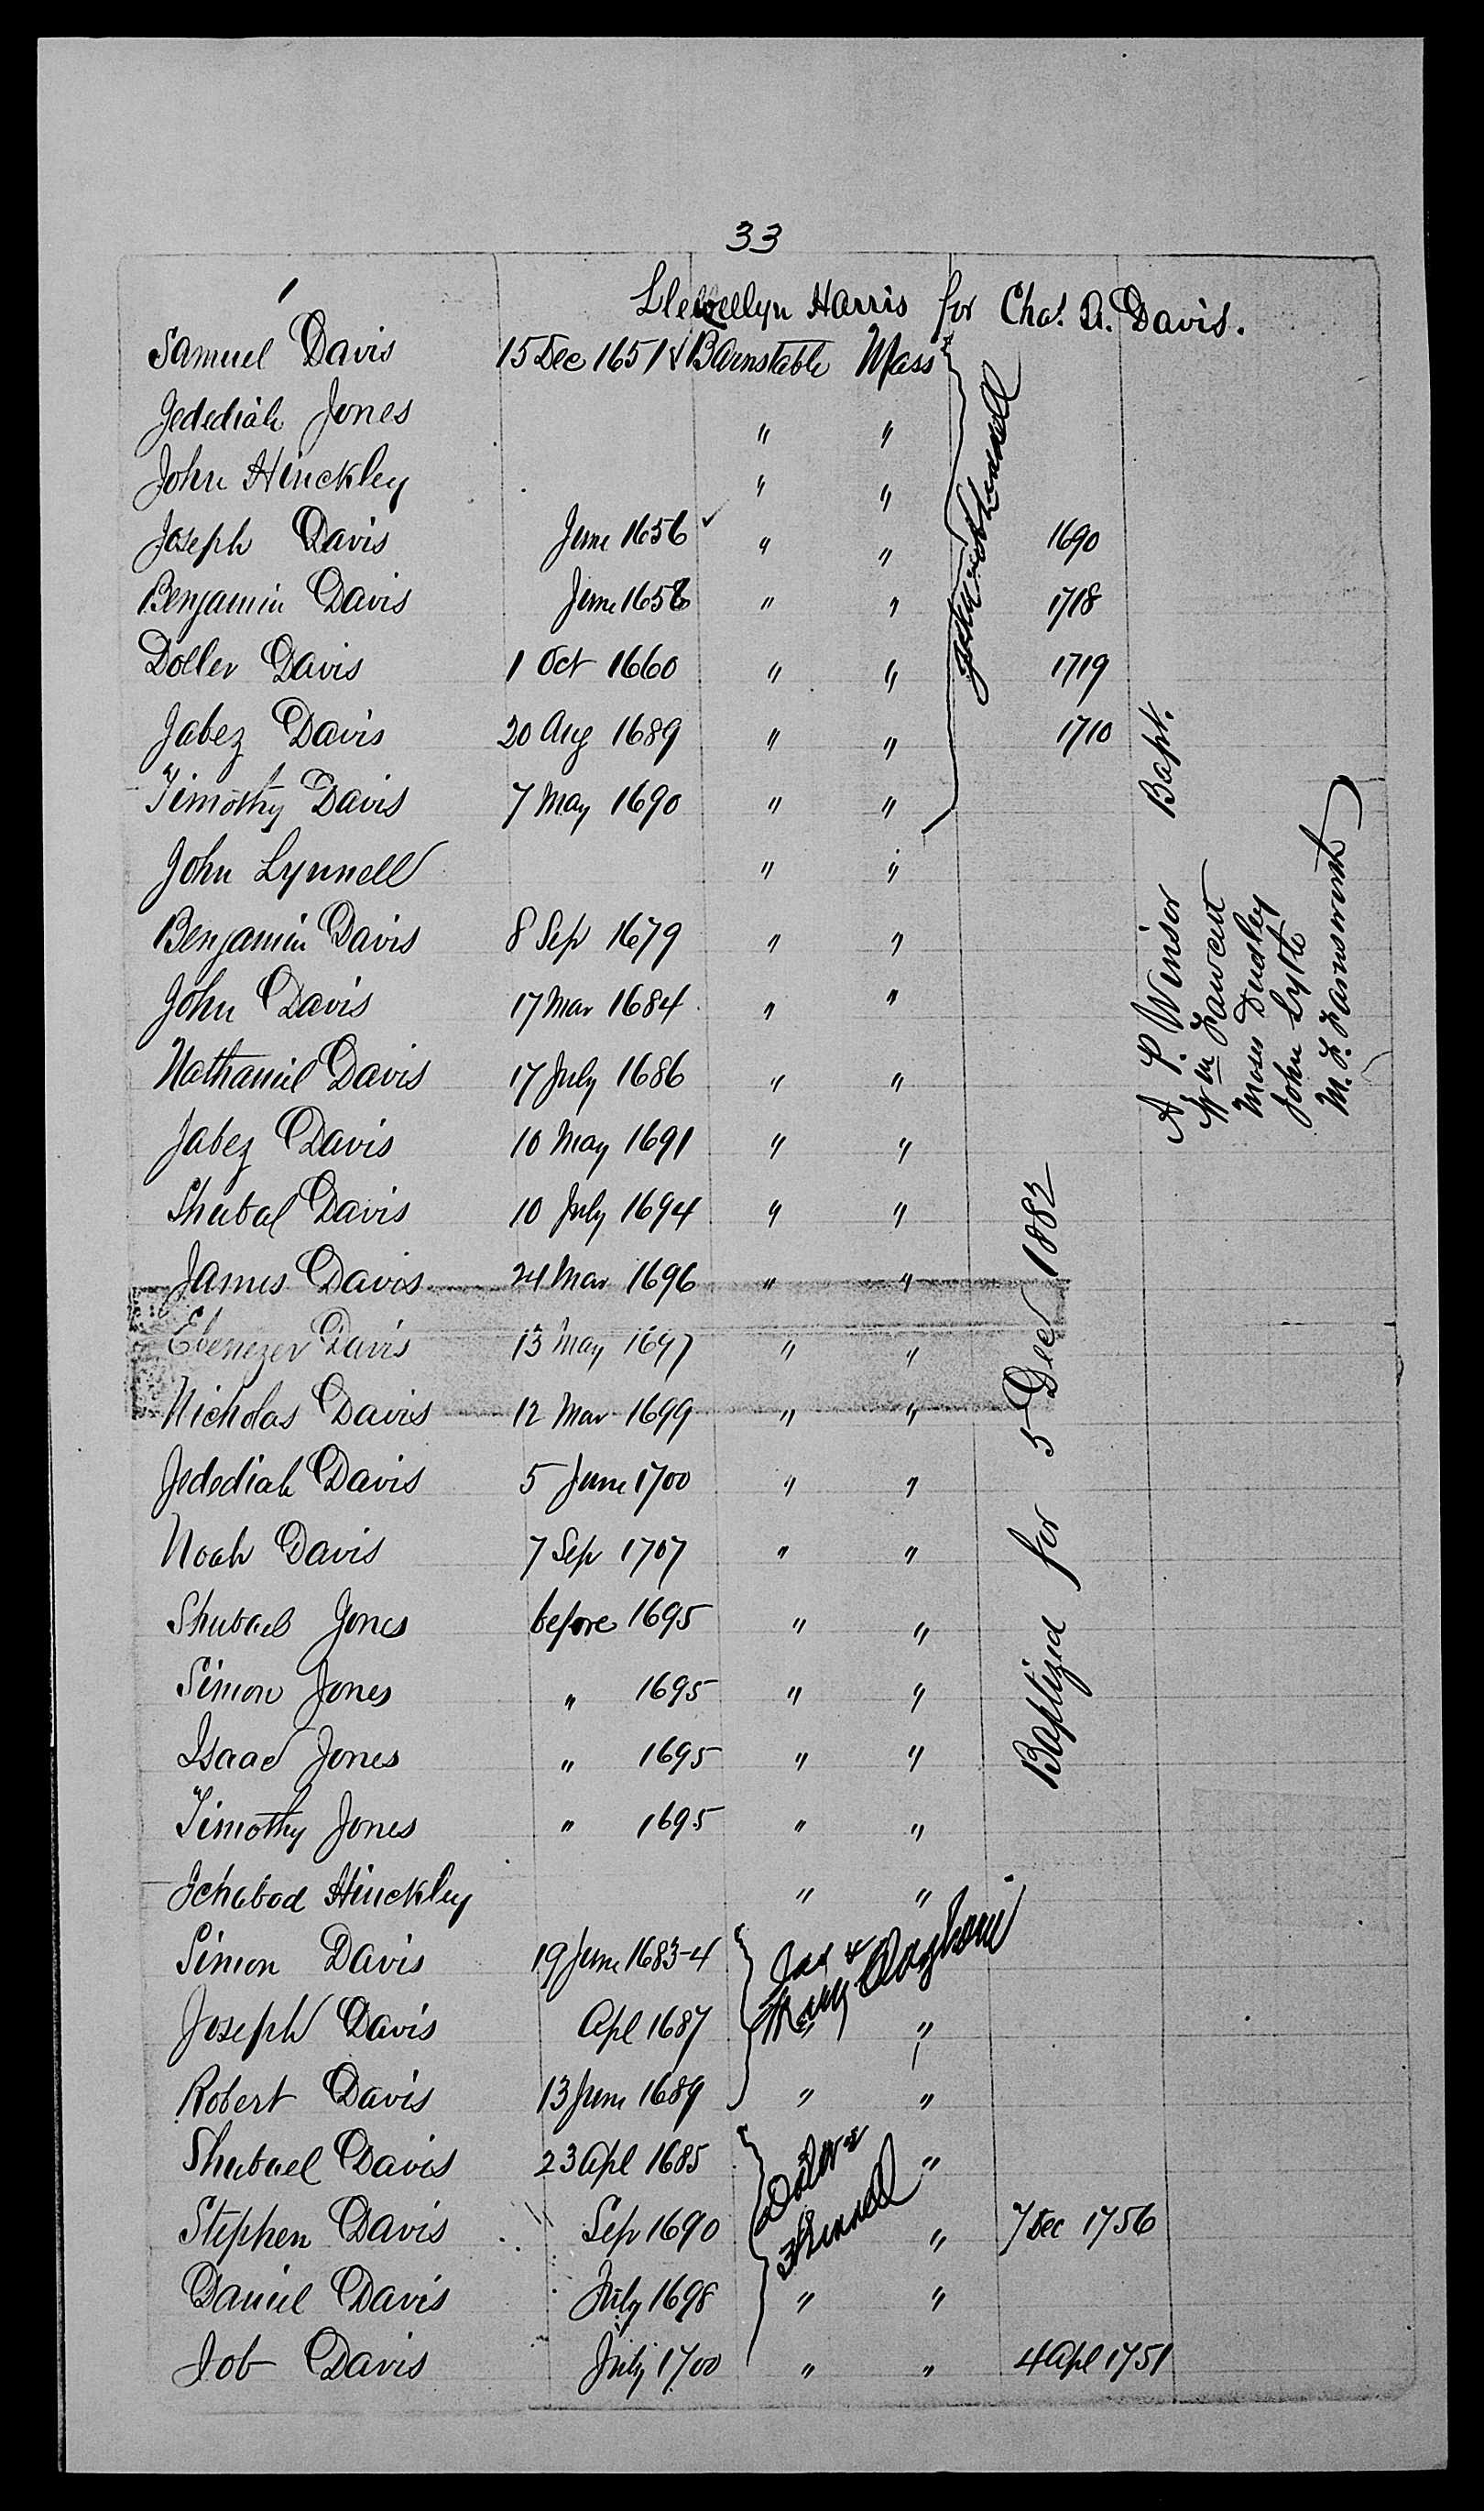 33
Llewellyn Harris for Chas. A. Davis.
Samuel Davis 15 Dec 1651 Barnstable Mass
Jedediah Jones " "
John Hinckley " "
Joseph Davis June 1656 ✓ " " 1690
Benjamin Davis June 1658 " " 1718
Doller Davis 1 Oct 1660 " " 1719
Jabez Davis 20 Aug 1689 " " 1710
Timothy Davis 7 May 1690 " "
John Lynnell " "
Benjamin Davis 8 Sep 1679 " "
John Davis 17 Mar 1684 " "
Nathaniel Davis 17 July 1686 " "
Jabez Davis 10 May 1691 " "
Shubal Davis 10 July 1694 " "
James Davis 24 Mar 1696 " "
Ebenezer Davis 13 May 1697 " "
Nicholas Davis 12 Mar 1699 " "
Jedediah Davis 5 June 1700 " "
Noah Davis 7 Sep 1707 " "
Shubael Jones before 1695 " "
Simon Jones " 1695 " "
Isaac Jones " 1695 " "
Timothy Jones " 1695 " "
Ichabod Hinckley " "
Simon Davis 19 June 1683-4
Joseph Davis Apl 1687 " "
Robert Davis 13 June 1689 " "
Shubael Davis 23 Apl 1685 "
Stephen Davis Sep 1690 " 7 Dec 1756
Daniel Davis July 1698 " "
Job Davis July 1700 " " 4 Apl 1751
Jas & Mary
Baptized for 5 Dec 1882
Bapt.
A P. Winsor
Wm Fawcett
Moses Dudley
John Lytle
M. F. Farnsworth